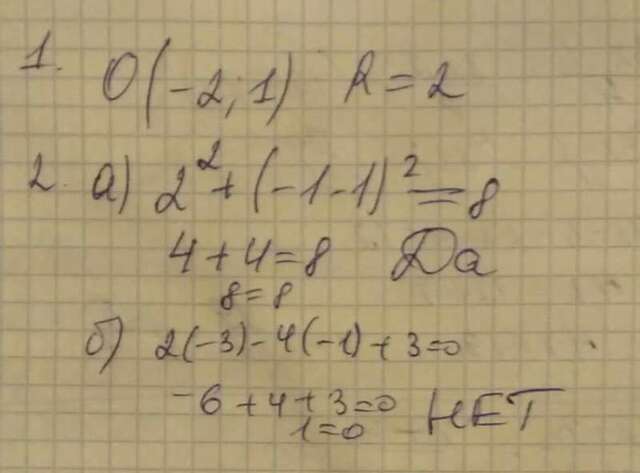 1. O(-2;1) R=2
2. а) 2²+(-1-1)²=8
4+4=8 Да
8=8
б) 2(-3)-4(-1)+3=0
-6+4+3=0 НЕТ
1=0